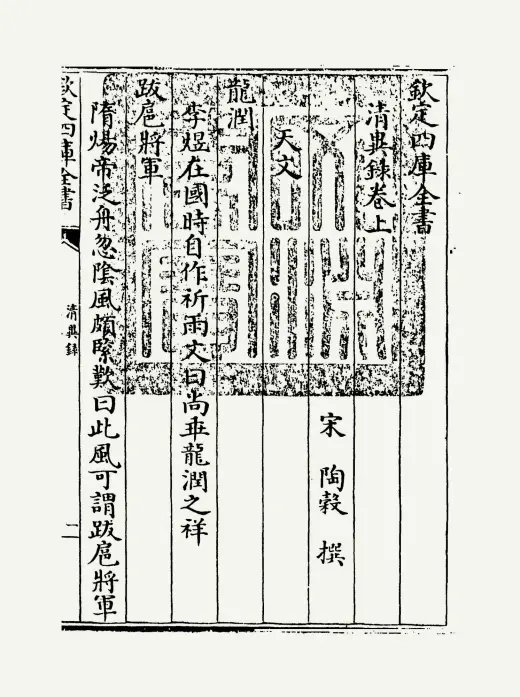 欽定四庫全書
清異錄卷上
宋 陶穀 撰
天文
龍潤
李煜在國時自作祈雨文曰尚垂龍潤之祥
跋扈將軍
隋煬帝泛舟忽陰風頗緊歎曰此風可謂跋扈將軍
欽定四庫全書
清異錄
二